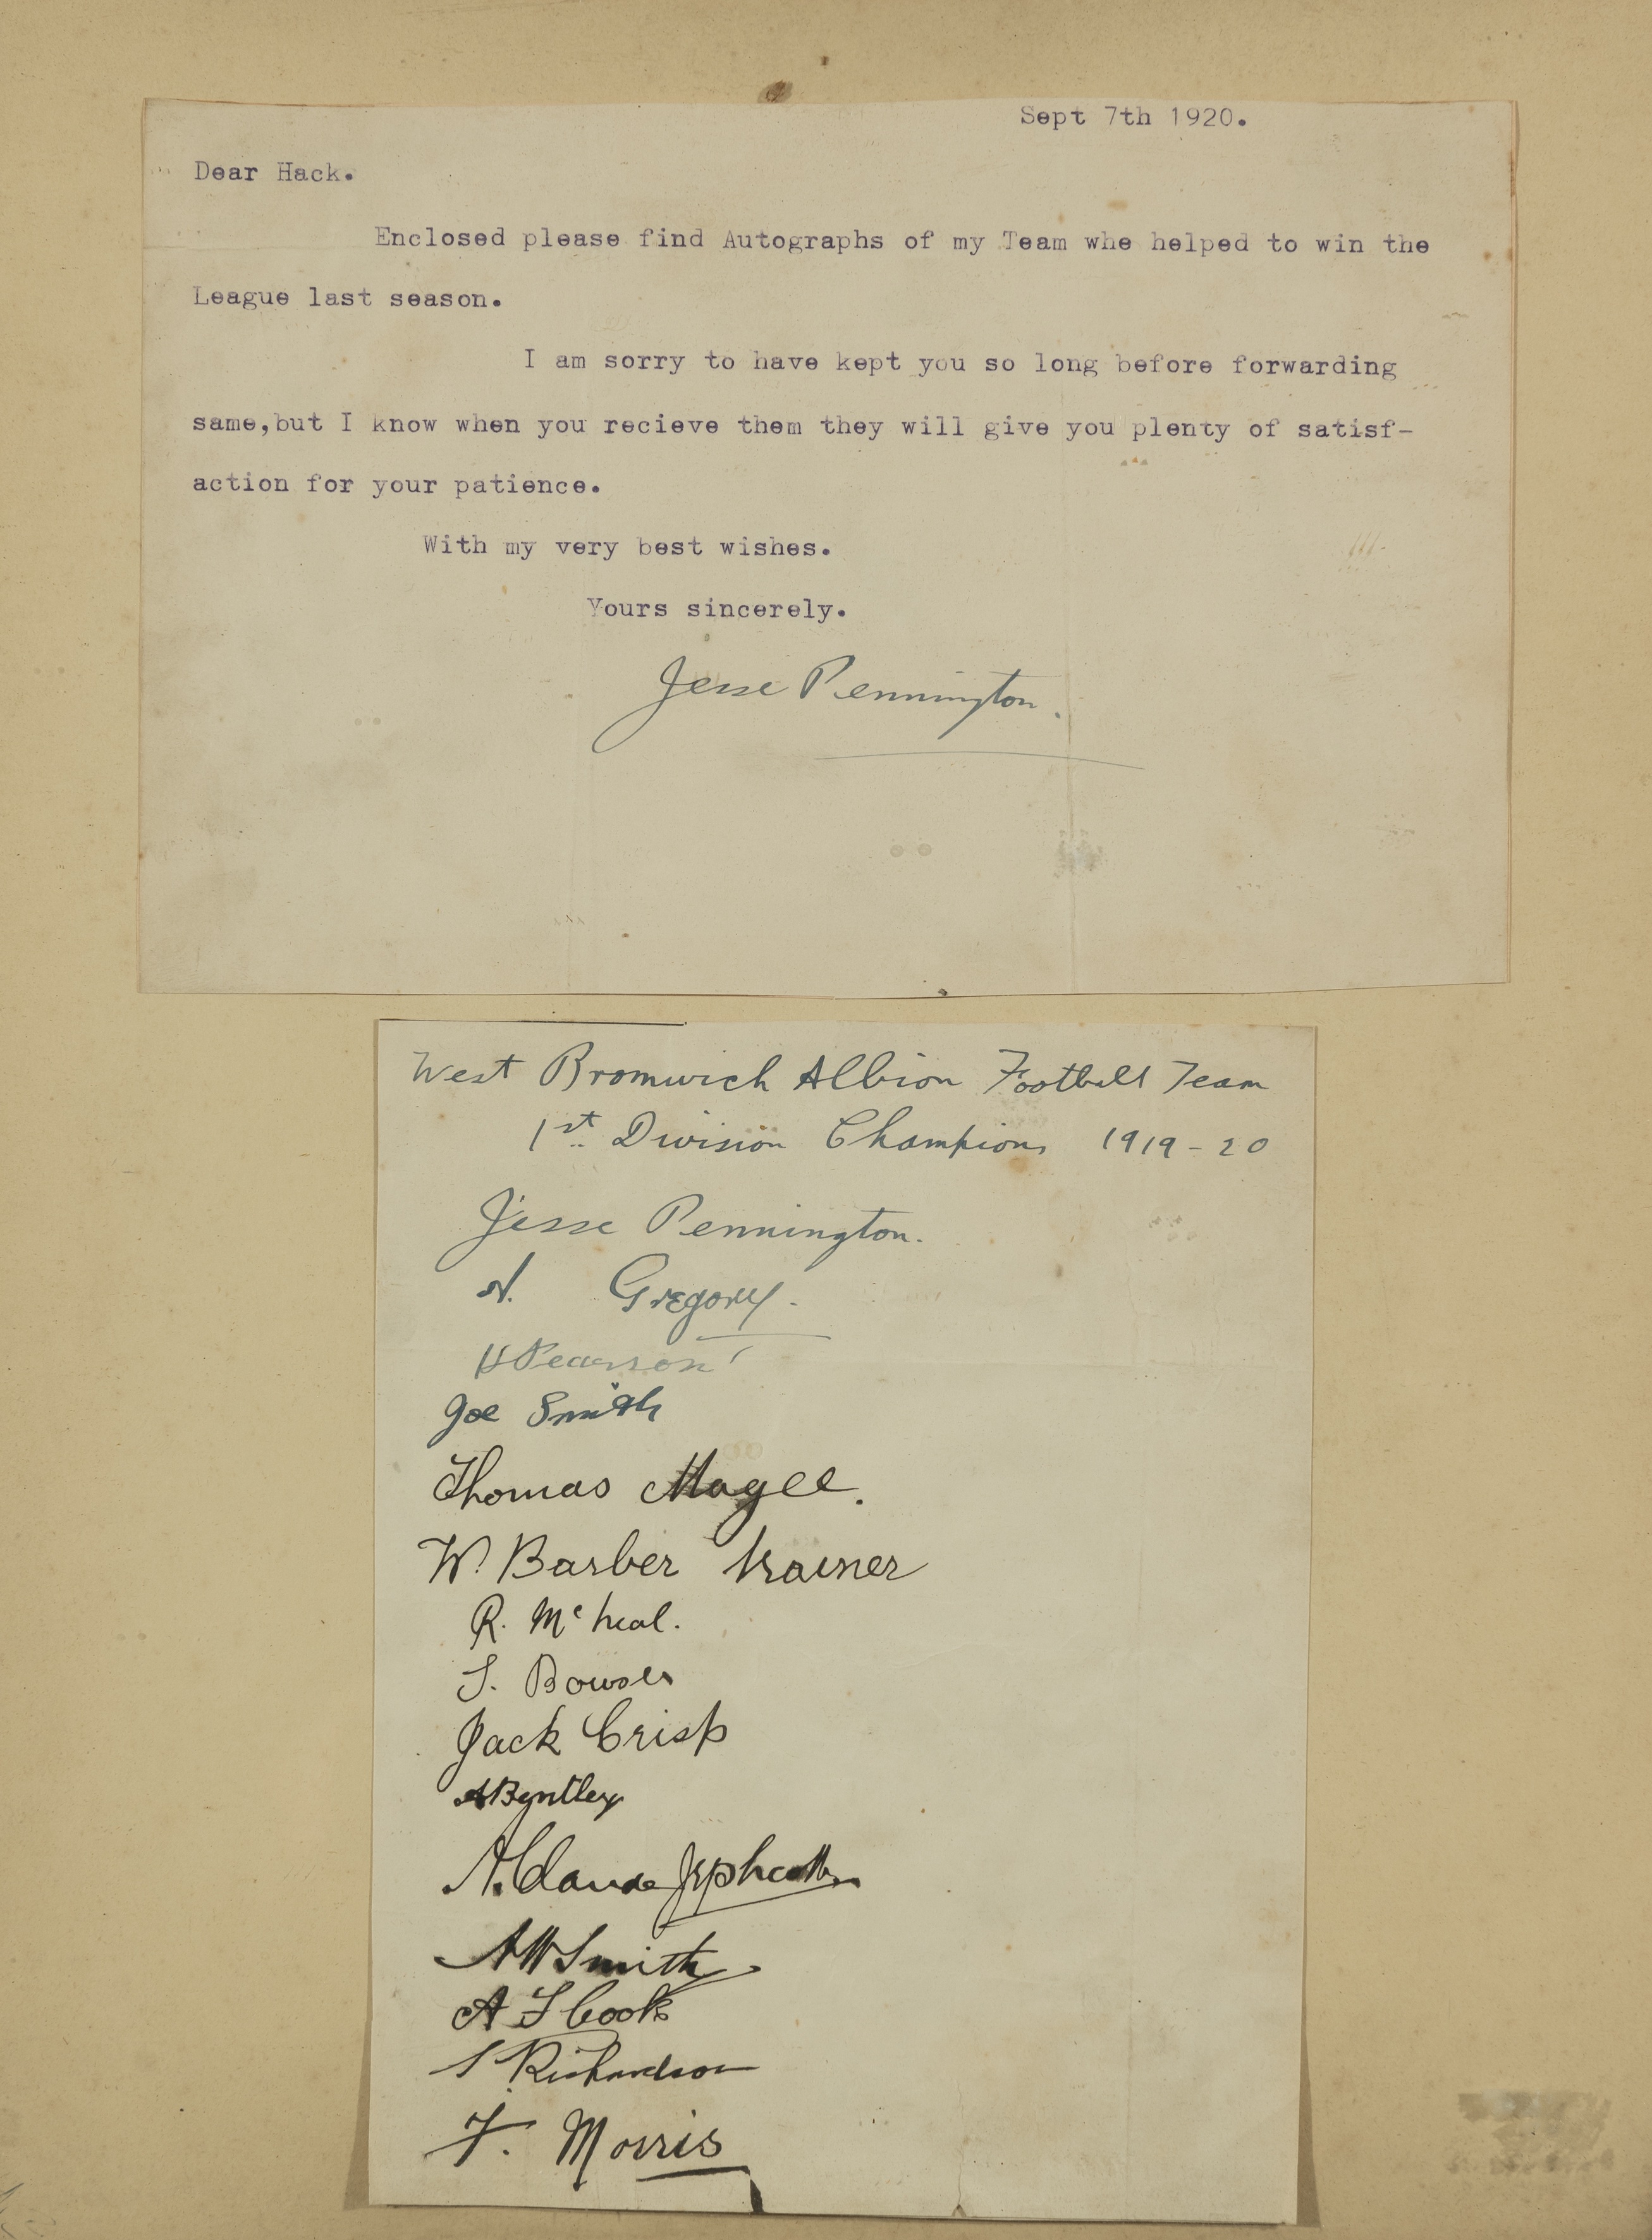 Sept 7th 1920.
Dear Hack.
Enclosed please find Autographs of my Team whe helped to win the
League last season.
I am sorry to have kept you so long before forwarding
same,but I know when you recieve them they will give you plenty of satisf-
action for your patience.
With my very best wishes.
Yours sincerely.
Jesse Pennington.
West Bromwich Albion Football Team
1st Division Champions 1919-20
Jesse Pennington.
H. Gregory.
H Pearson
Joe Smith
Thomas Magee.
W. Barber trainer
R. McNeal.
S. Bowser
Jack Crisp
A Bentley
A. Claude Jephcott
AW Smith
A F Cook
S Richardson
F. Morris